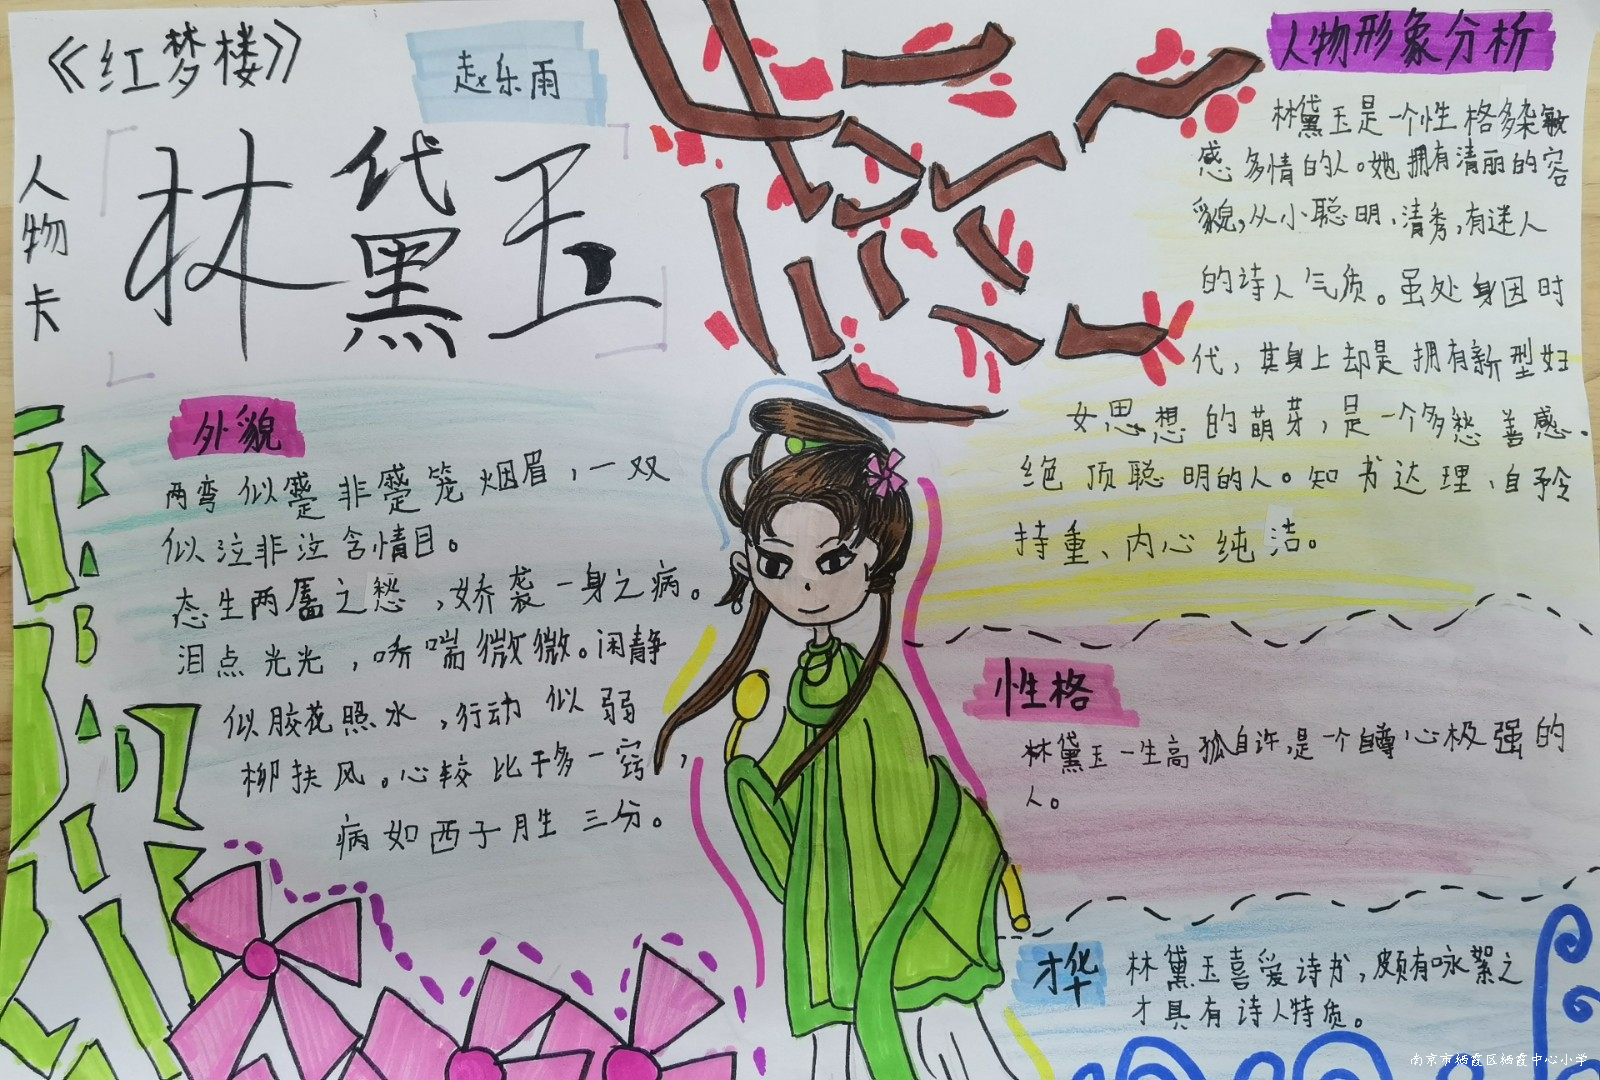 《红梦楼》
赵乐雨
人物卡
林黛玉
外貌
两弯似蹙非蹙笼烟眉，一双
似泣非泣含情目。
态生两靥之愁，娇袭一身之病。
泪点光光，娇喘微微。闲静
似胶花照水，行动似弱
柳扶风。心较比干多一窍，
病如西子胜三分。
人物形象分析
林黛玉是一个性格多杂敏
感多情的人。她拥有清丽的容
貌，从小聪明、清秀，有迷人
的诗人气质。虽处身因时
代，其身上却是拥有新型妇
女思想的萌芽，是一个多愁善感.
绝顶聪明的人。知书达理、自矜
持重、内心纯洁。
性格
林黛玉一生高孤自许，是一个自尊心极强的
人。
才华
林黛玉喜爱诗书，颇有咏絮之
才具有诗人特质。
南京市栖霞区栖霞中心小学